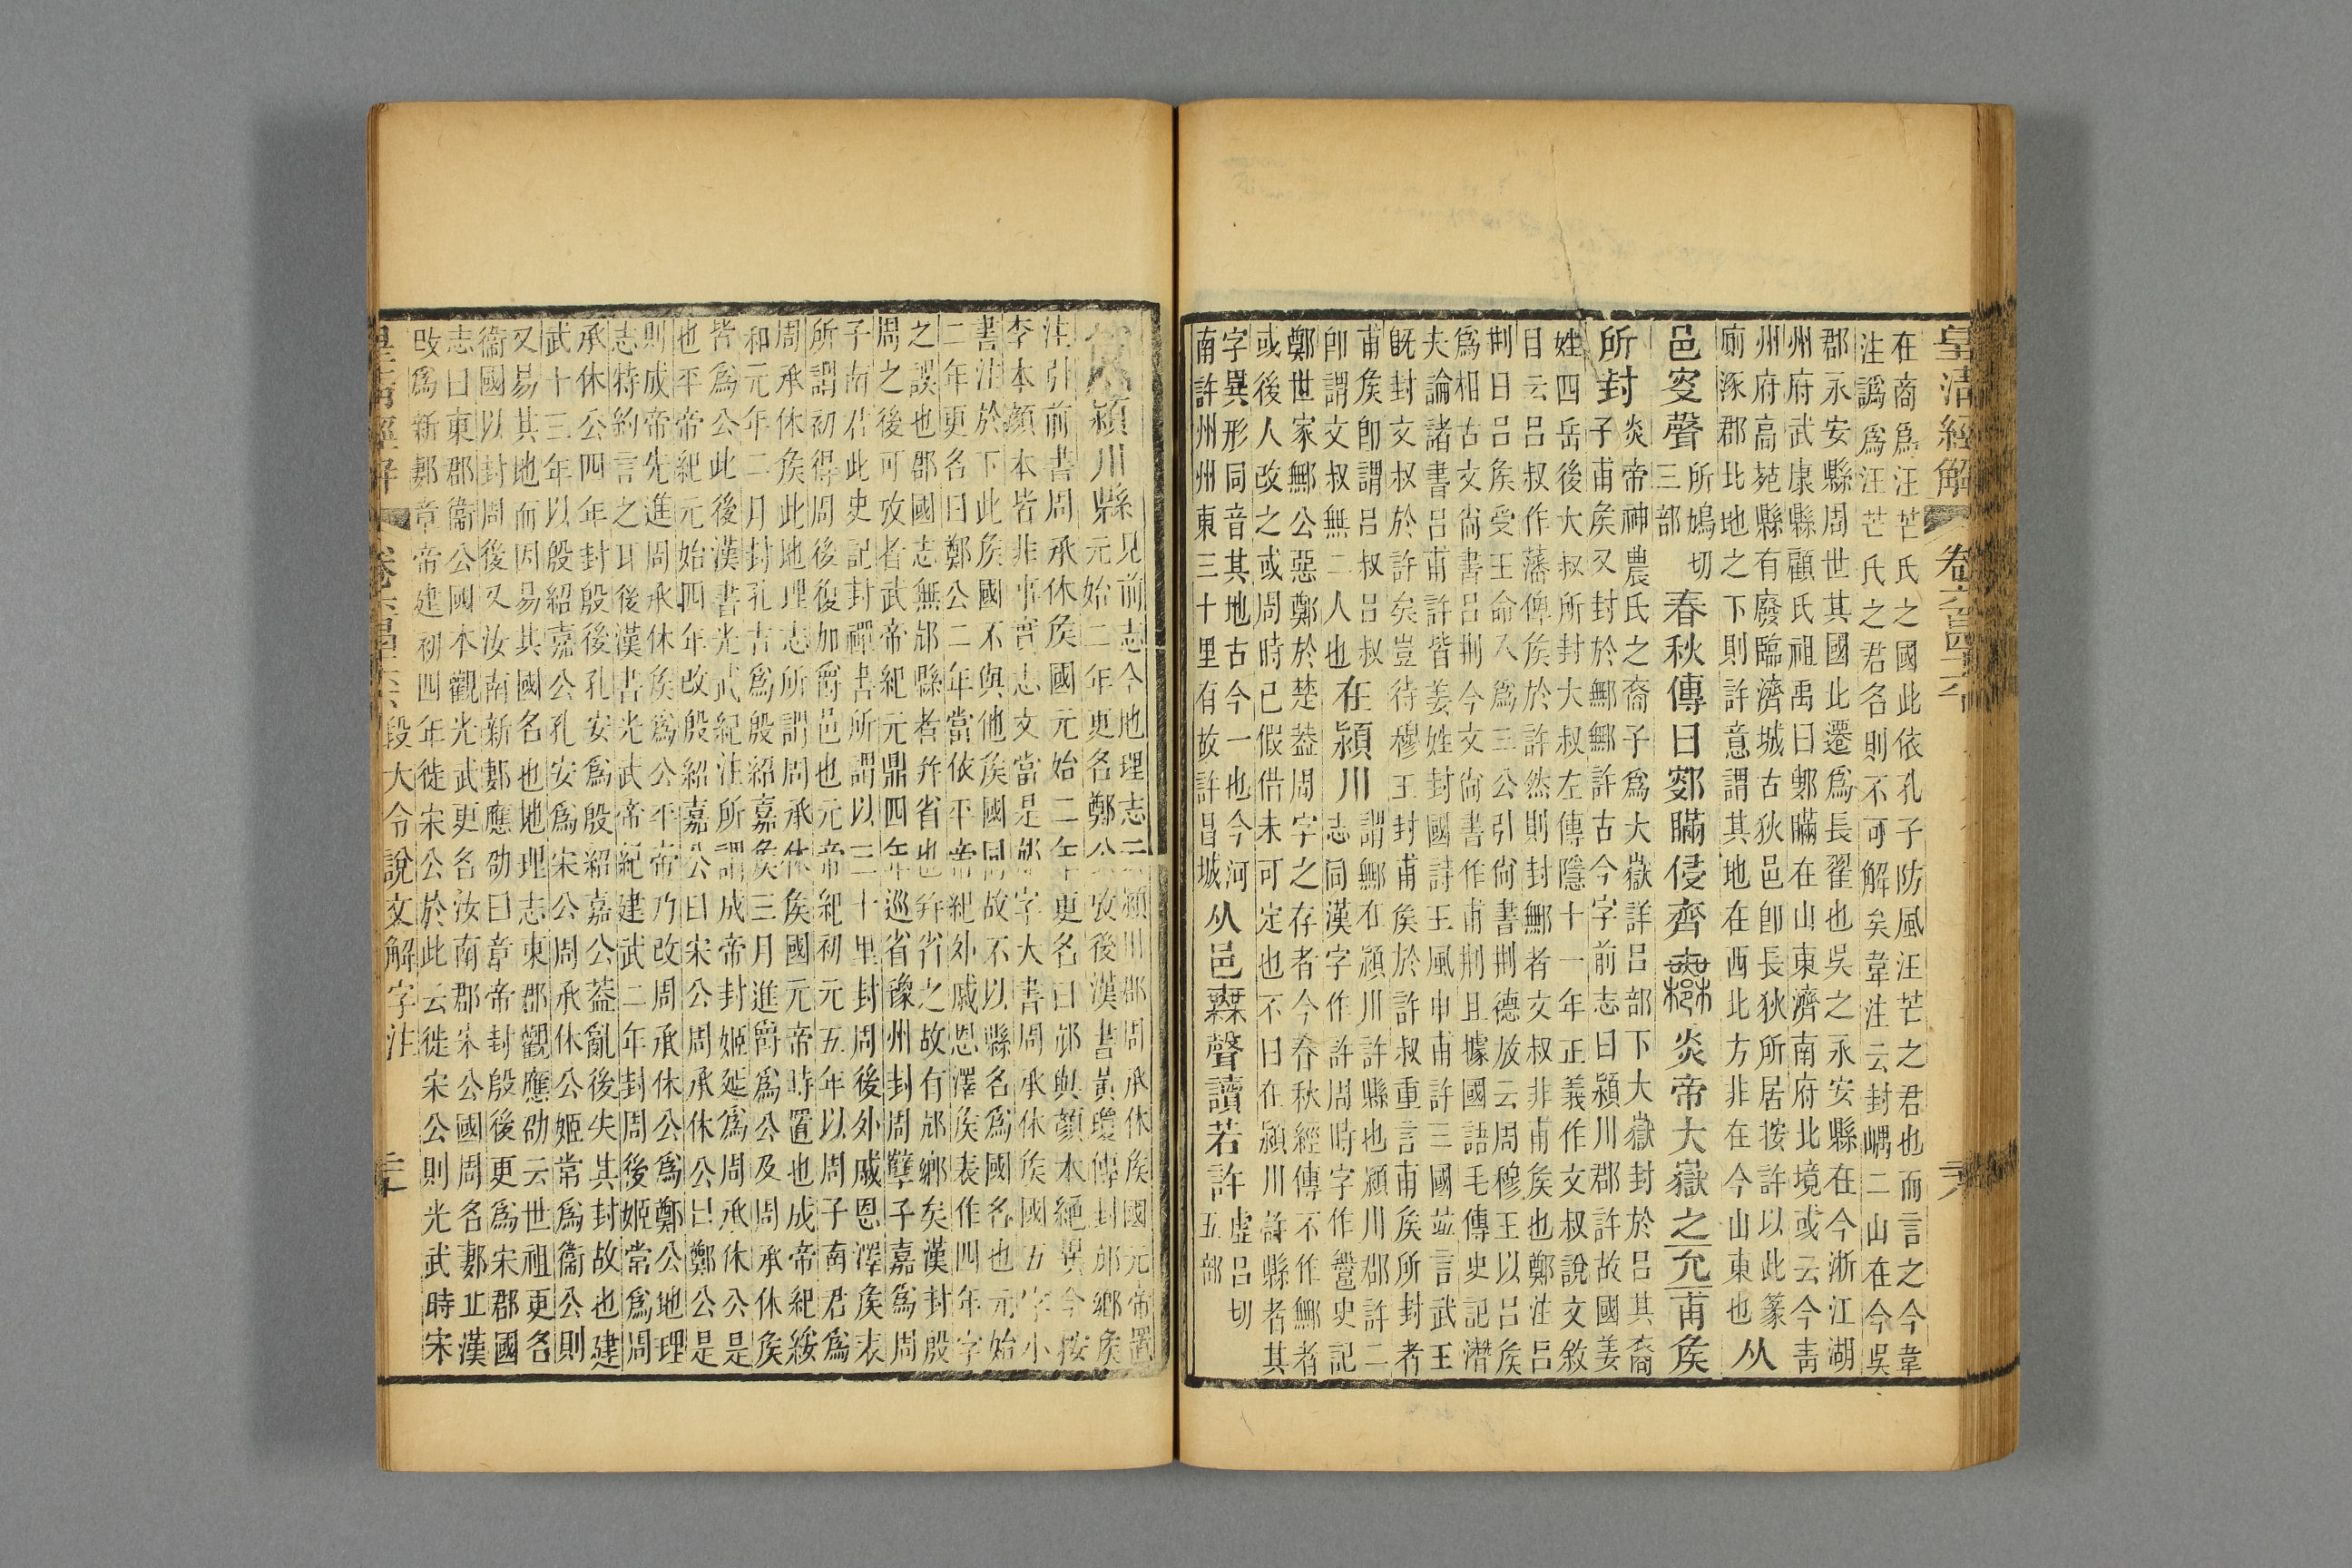 皇清經解 卷六百四十六
在商爲汪芒氏之國此依孔子防風汪芒之君也而言之今韋
注譌爲汪芒氏之君名則不可解矣韋注云封嵎二山在今吳
郡永安縣周世其國此遷爲長翟也吳之永安縣在今浙江湖
州府武康縣顧氏祖禹曰鄋瞞在山東濟南府北境或云今靑
州府高苑縣有廢臨濟城古狄邑卽長狄所居按許以此篆
廁涿郡北地之下則許意謂其地在西北方非在今山東也 从
邑叜聲 所鳩切三部 春秋傳曰鄋瞞侵齊 炎帝大嶽之允甫矦
所封 炎帝神農氏之裔子爲大嶽詳呂部下大嶽封於呂其裔
子甫矦又封於鄦鄦許古今字前志曰潁川郡許故國姜
姓四岳後大叔所封大叔左傳隱十一年正義作文叔說文敘
目云呂叔作藩俾矦於許然則封鄦者文叔非甫矦也鄭注呂
荆曰呂矦受王命入爲三公引尙書荆德放云周穆王以呂矦
爲相古文尙書呂荆今文尙書作甫荆且據國語毛傳史記潛
夫論諸書呂甫許皆姜姓封國詩王風申甫許三國並言武王
旣封文叔於許矣豈待穆王封甫矦於許叔重言甫矦所封者
甫矦卽謂呂叔呂叔
卽謂文叔無二人也 在潁川 謂鄦在潁川許縣也潁川郡許二
志同漢字作許周時字作鄦史記
鄭世家鄦公惡鄭於楚葢周字之存者今春秋經傳不作鄦者
或後人改之或周時已假借未可定也不曰在潁川許縣者其
字異形同音其地古今一也今河
南許州州東三十里有故許昌城 从邑無聲讀若許 虛呂切五部
潁川縣 見前志今地理志
元始二年更名鄭公
注引前書周承休矦國元始二年更名曰邟與顏本絕異今按
李本顏本皆非事實志文當是邟字大書周承休矦國五字小
書注於下此矦國不與他矦國同故不以縣名爲國名也元始
二年更名曰鄭公二年當依平帝紀外戚恩澤矦表作四年字
之誤也郡國志無邟縣者幷省也幷省之故有邟鄉矣漢封殷
周之後可攷者武帝紀元鼎四年巡省豫州封周孽子嘉爲周
子南君此史記封禪書所謂以三十里封周後外戚恩澤矦表
所謂初得周後復加爵邑也元帝紀初元五年以周子南君爲
周承休矦此地理志所謂周承休矦國元帝時置也成帝紀綏
和元年二月封孔吉爲殷紹嘉矦三月進爵爲公及周承休矦
皆爲公此後漢書光武紀注所謂成帝封姬延爲周承休公是
也平帝紀元始四年改殷紹嘉公曰宋公周承休公曰鄭公是
則成帝先進周承休矦爲公平帝乃改周承休公爲鄭公地理
志特約言之耳後漢書光武帝紀建武二年封周後姬常爲周
承休公四年封殷後孔安爲殷紹嘉公葢亂後失其封故也建
武十三年以殷紹嘉公孔安爲宋公周承休公姬常爲衞公則
又易其地而因易其國名也地理志東郡觀應劭云世祖更名
衞國以封周後又汝南新郪應劭曰章帝封殷後更爲宋郡國
志曰東郡衞公國本觀光武更名汝南郡宋公國周名郪丘漢
改爲新郪章帝建初四年徙宋公於此云徙宋公則光武時宋
皇清經解 段大令說文解字注